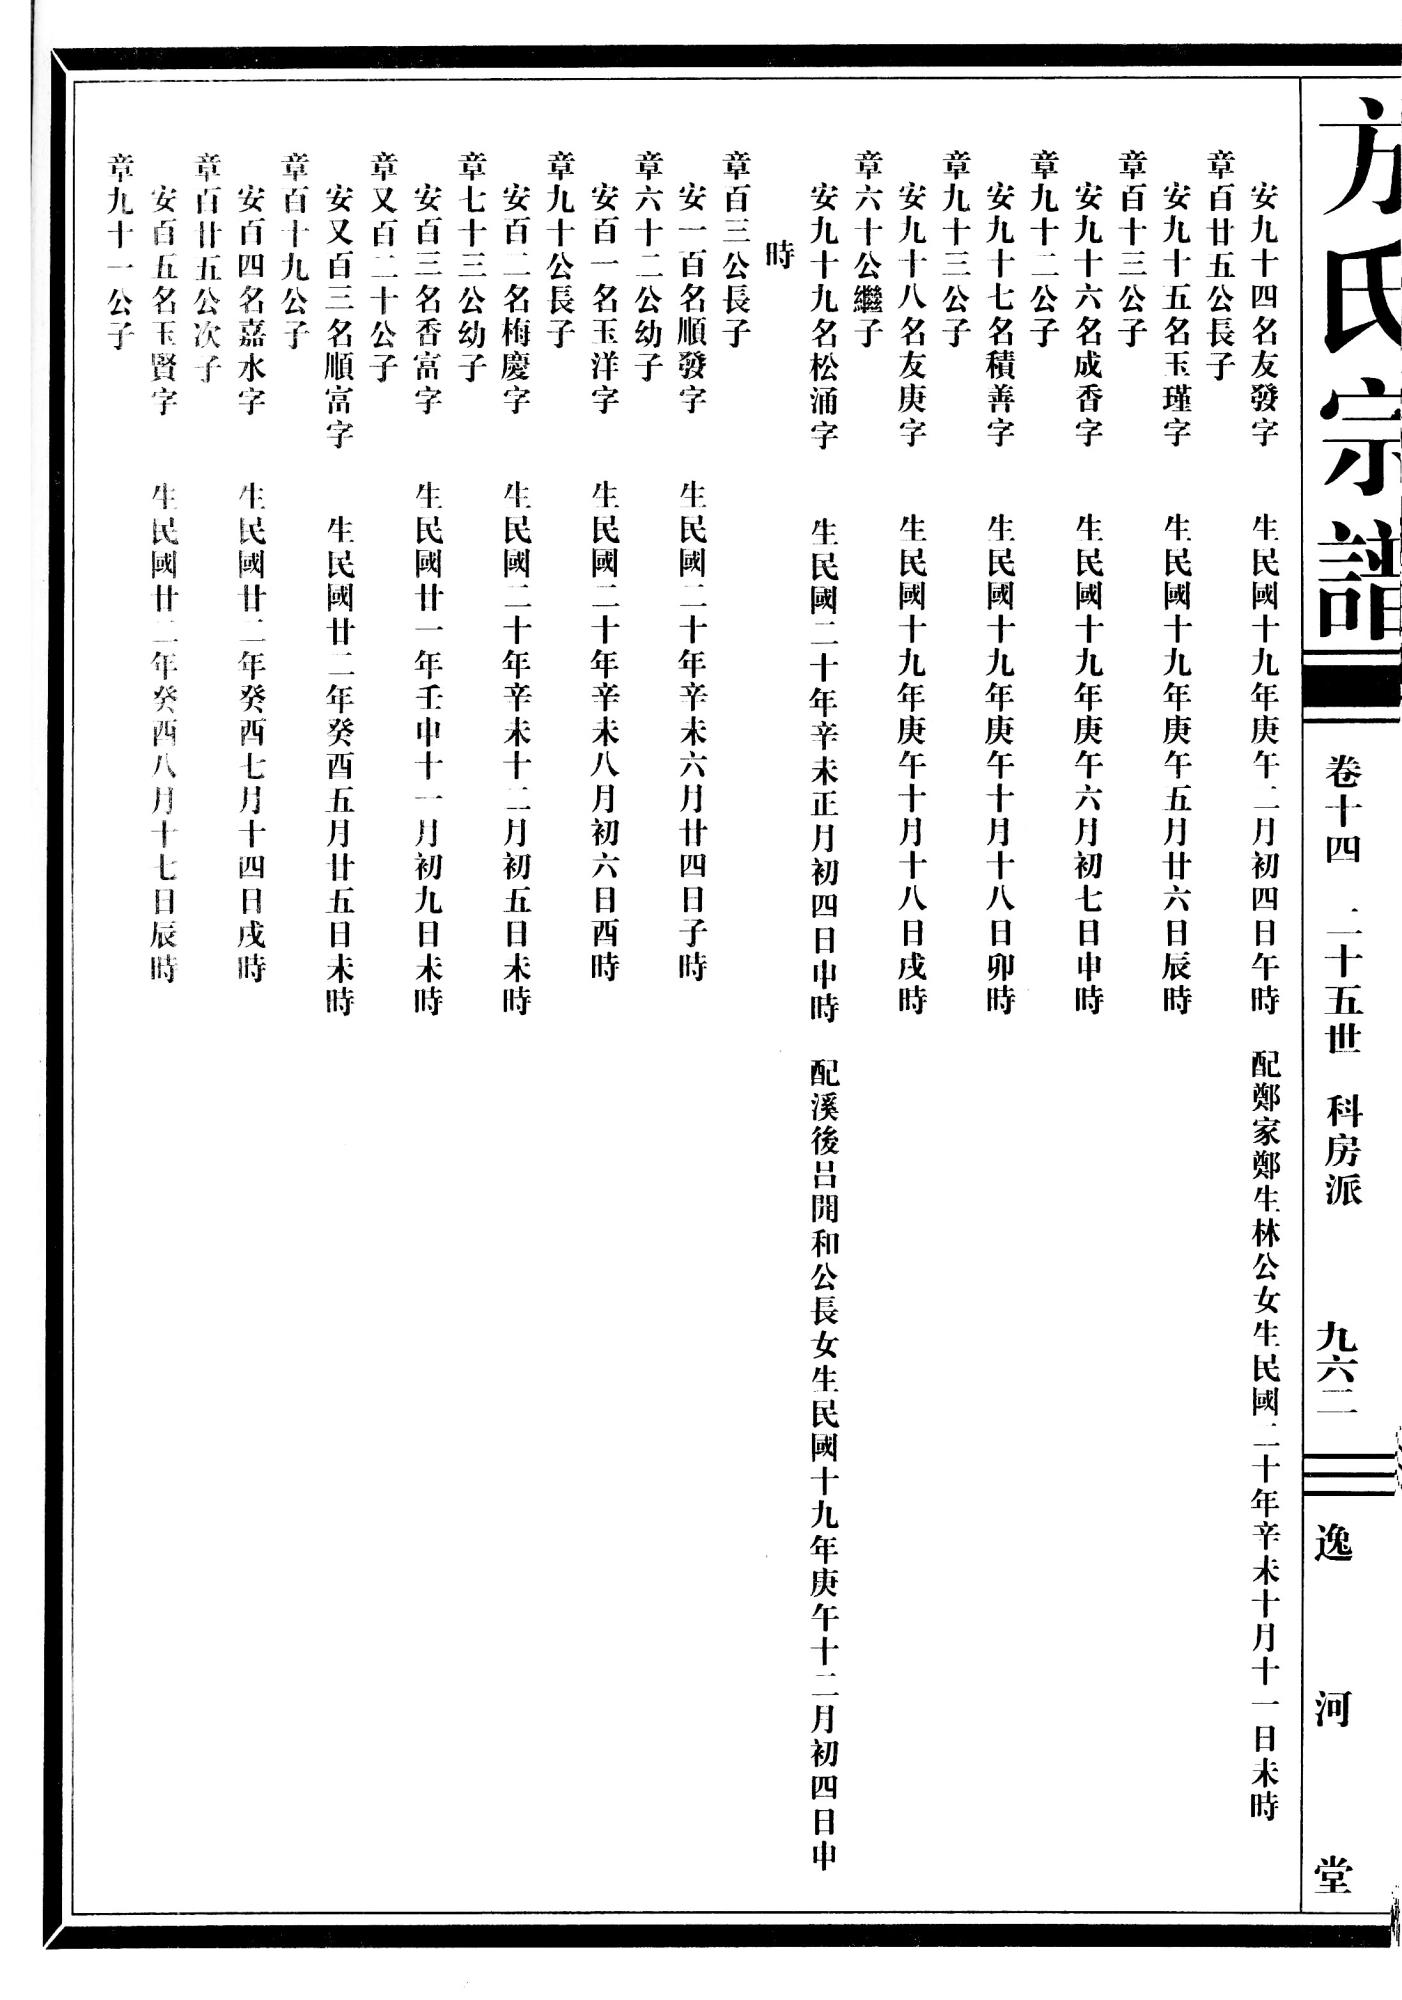 方氏宗譜
卷十四 二十五世 科房派 九六二
逸河堂
安九十四名友發字 生民國十九年庚午二月初四日午時 配鄭家鄭生林公女生民國二十年辛未十月十一日未時
章百廿五公長子
安九十五名玉瑾字 生民國十九年庚午五月廿六日辰時
章百十三公子
安九十六名成香字 生民國十九年庚午六月初七日申時
章九十二公子
安九十七名積善字 生民國十九年庚午十月十八日卯時
章九十三公子
安九十八名友庚字 生民國十九年庚午十月十八日戌時
章六十公繼子
安九十九名松涌字 生民國二十年辛未正月初四日申時 配溪後呂開和公長女生民國十九年庚午十二月初四日申
時
章百三公長子
安一百名順發字 生民國二十年辛未六月廿四日子時
章六十二公幼子
安百一名玉洋字 生民國二十年辛未八月初六日酉時
章九十公長子
安百二名梅慶字 生民國二十年辛未十二月初五日未時
章七十三公幼子
安百三名香富字 生民國廿一年壬申十一月初九日未時
章又百二十公子
安又百三名順富字 生民國廿二年癸酉五月廿五日未時
章百十九公子
安百四名嘉水字 生民國廿二年癸酉七月十四日戌時
章百廿五公次子
安百五名玉賢字 生民國廿二年癸酉八月十七日辰時
章九十一公子